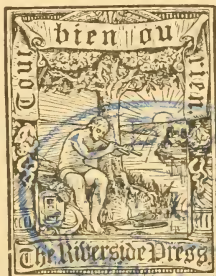 Tout bien ou rien
The Riverside Press